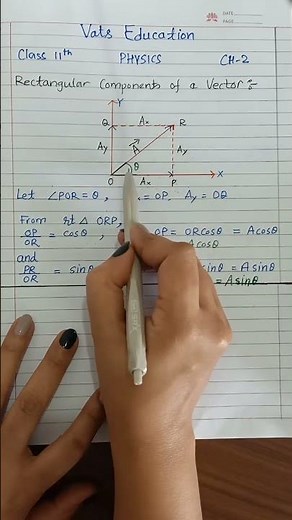 DATE
PAGE
Vats Education
Class 11th PHYSICS CH-2
Rectangular Components of a Vector :-
Y
Q Ax R
Ay A Ay
θ
O Ax P X
Let ∠POR = θ, = OP, Ay = OQ
From rt △ ORP,
OP/OR = cosθ, OP = ORcosθ = Acosθ
Acosθ
and
PR/OR = sinθ sinθ = Asinθ
= Asinθ